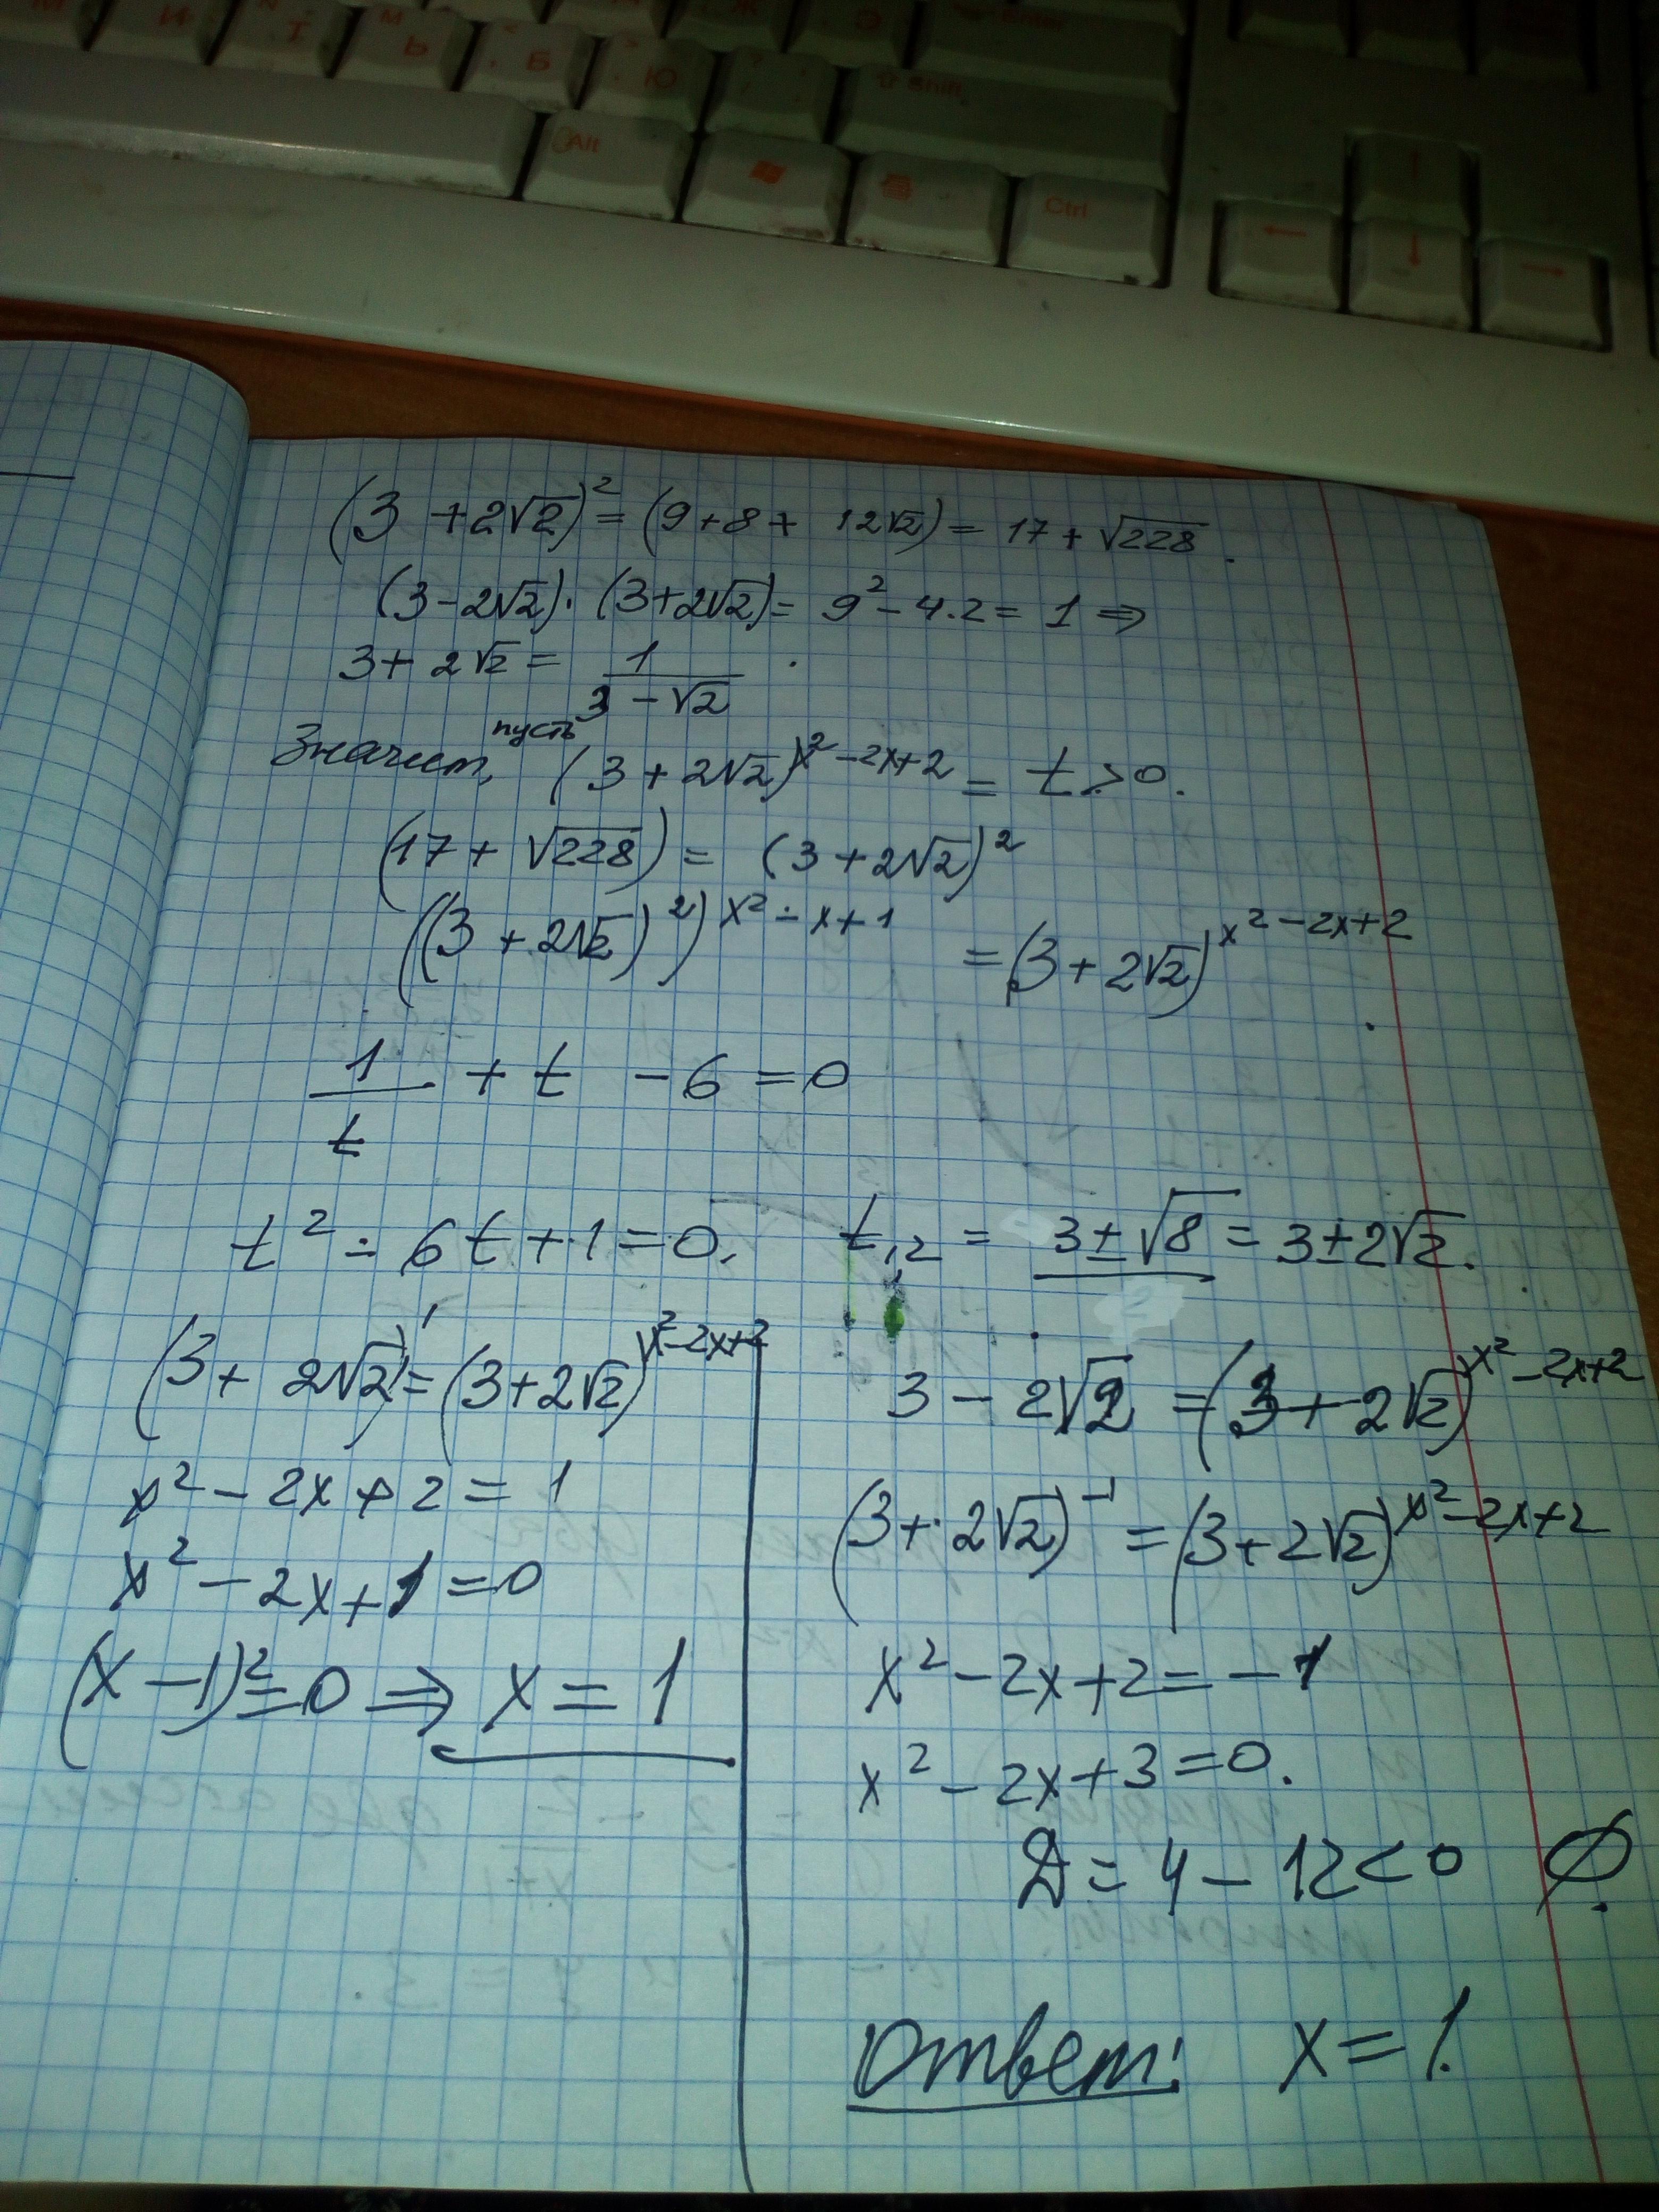 Alt
Ctrl
(3 + 2√2)² = (9 + 8 + 12√2) = 17 + √228.
(3 - 2√2) · (3 + 2√2) = 9² - 4·2 = 1 ⇒
3 + 2√2 = 1/(3 - √2).
Значит, пусть (3 + 2√2)^(x² - 2x + 2) = t > 0.
(17 + √228) = (3 + 2√2)²
((3 + 2√2)²)^(x² - x + 1) = (3 + 2√2)^(x² - 2x + 2)
1/t + t - 6 = 0
t² - 6t + 1 = 0. t,₂ = 3 ± √8 = 3 ± 2√2.
(3 + 2√2)¹ = (3 + 2√2)^(x² - 2x + 2)
x² - 2x + 2 = 1
x² - 2x + 1 = 0
(x - 1)² = 0 ⇒ x = 1
3 - 2√2 = (3 + 2√2)^(x² - 2x + 2)
(3 + 2√2)⁻¹ = (3 + 2√2)^(x² - 2x + 2)
x² - 2x + 2 = -1
x² - 2x + 3 = 0.
D = 4 - 12 < 0 ∅.
Ответ: x = 1.